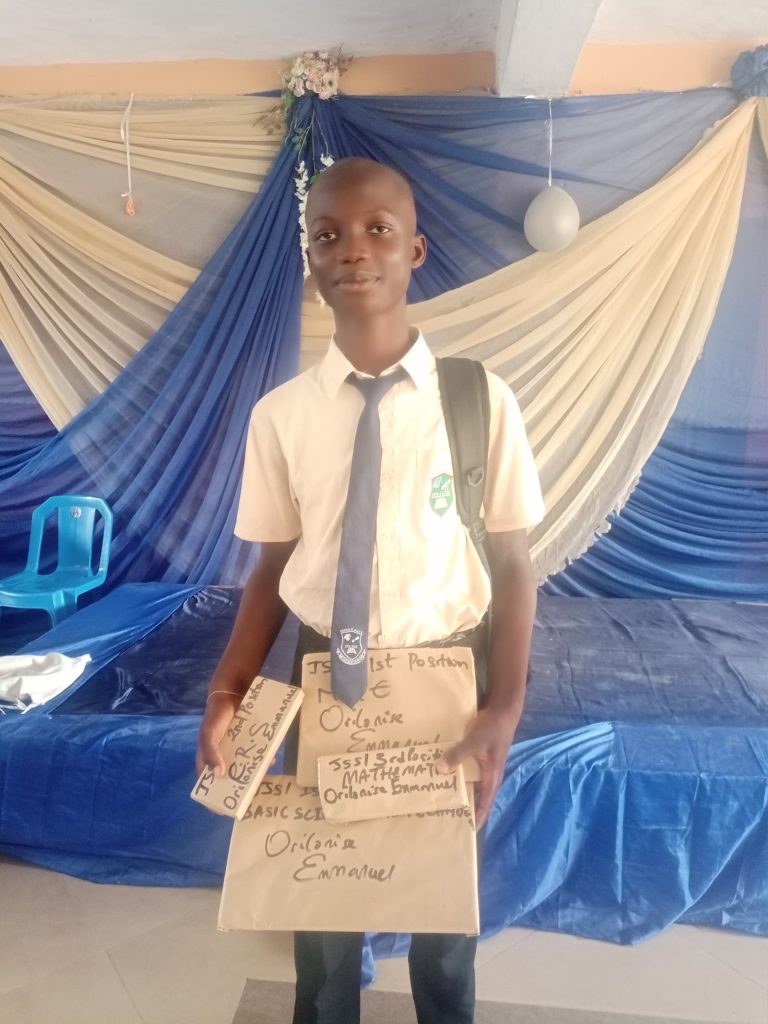 COLLEGE
JSS1 1st Position
Orilonise
Emmanuel
JSS1 2nd Position
C.R.S
Orilonise Emmanuel
JSS1 3rd Positi
MATHEMAT
Orilonise Emmanuel
JSS1
BASIC SCI
Orilonise
Emmanuel